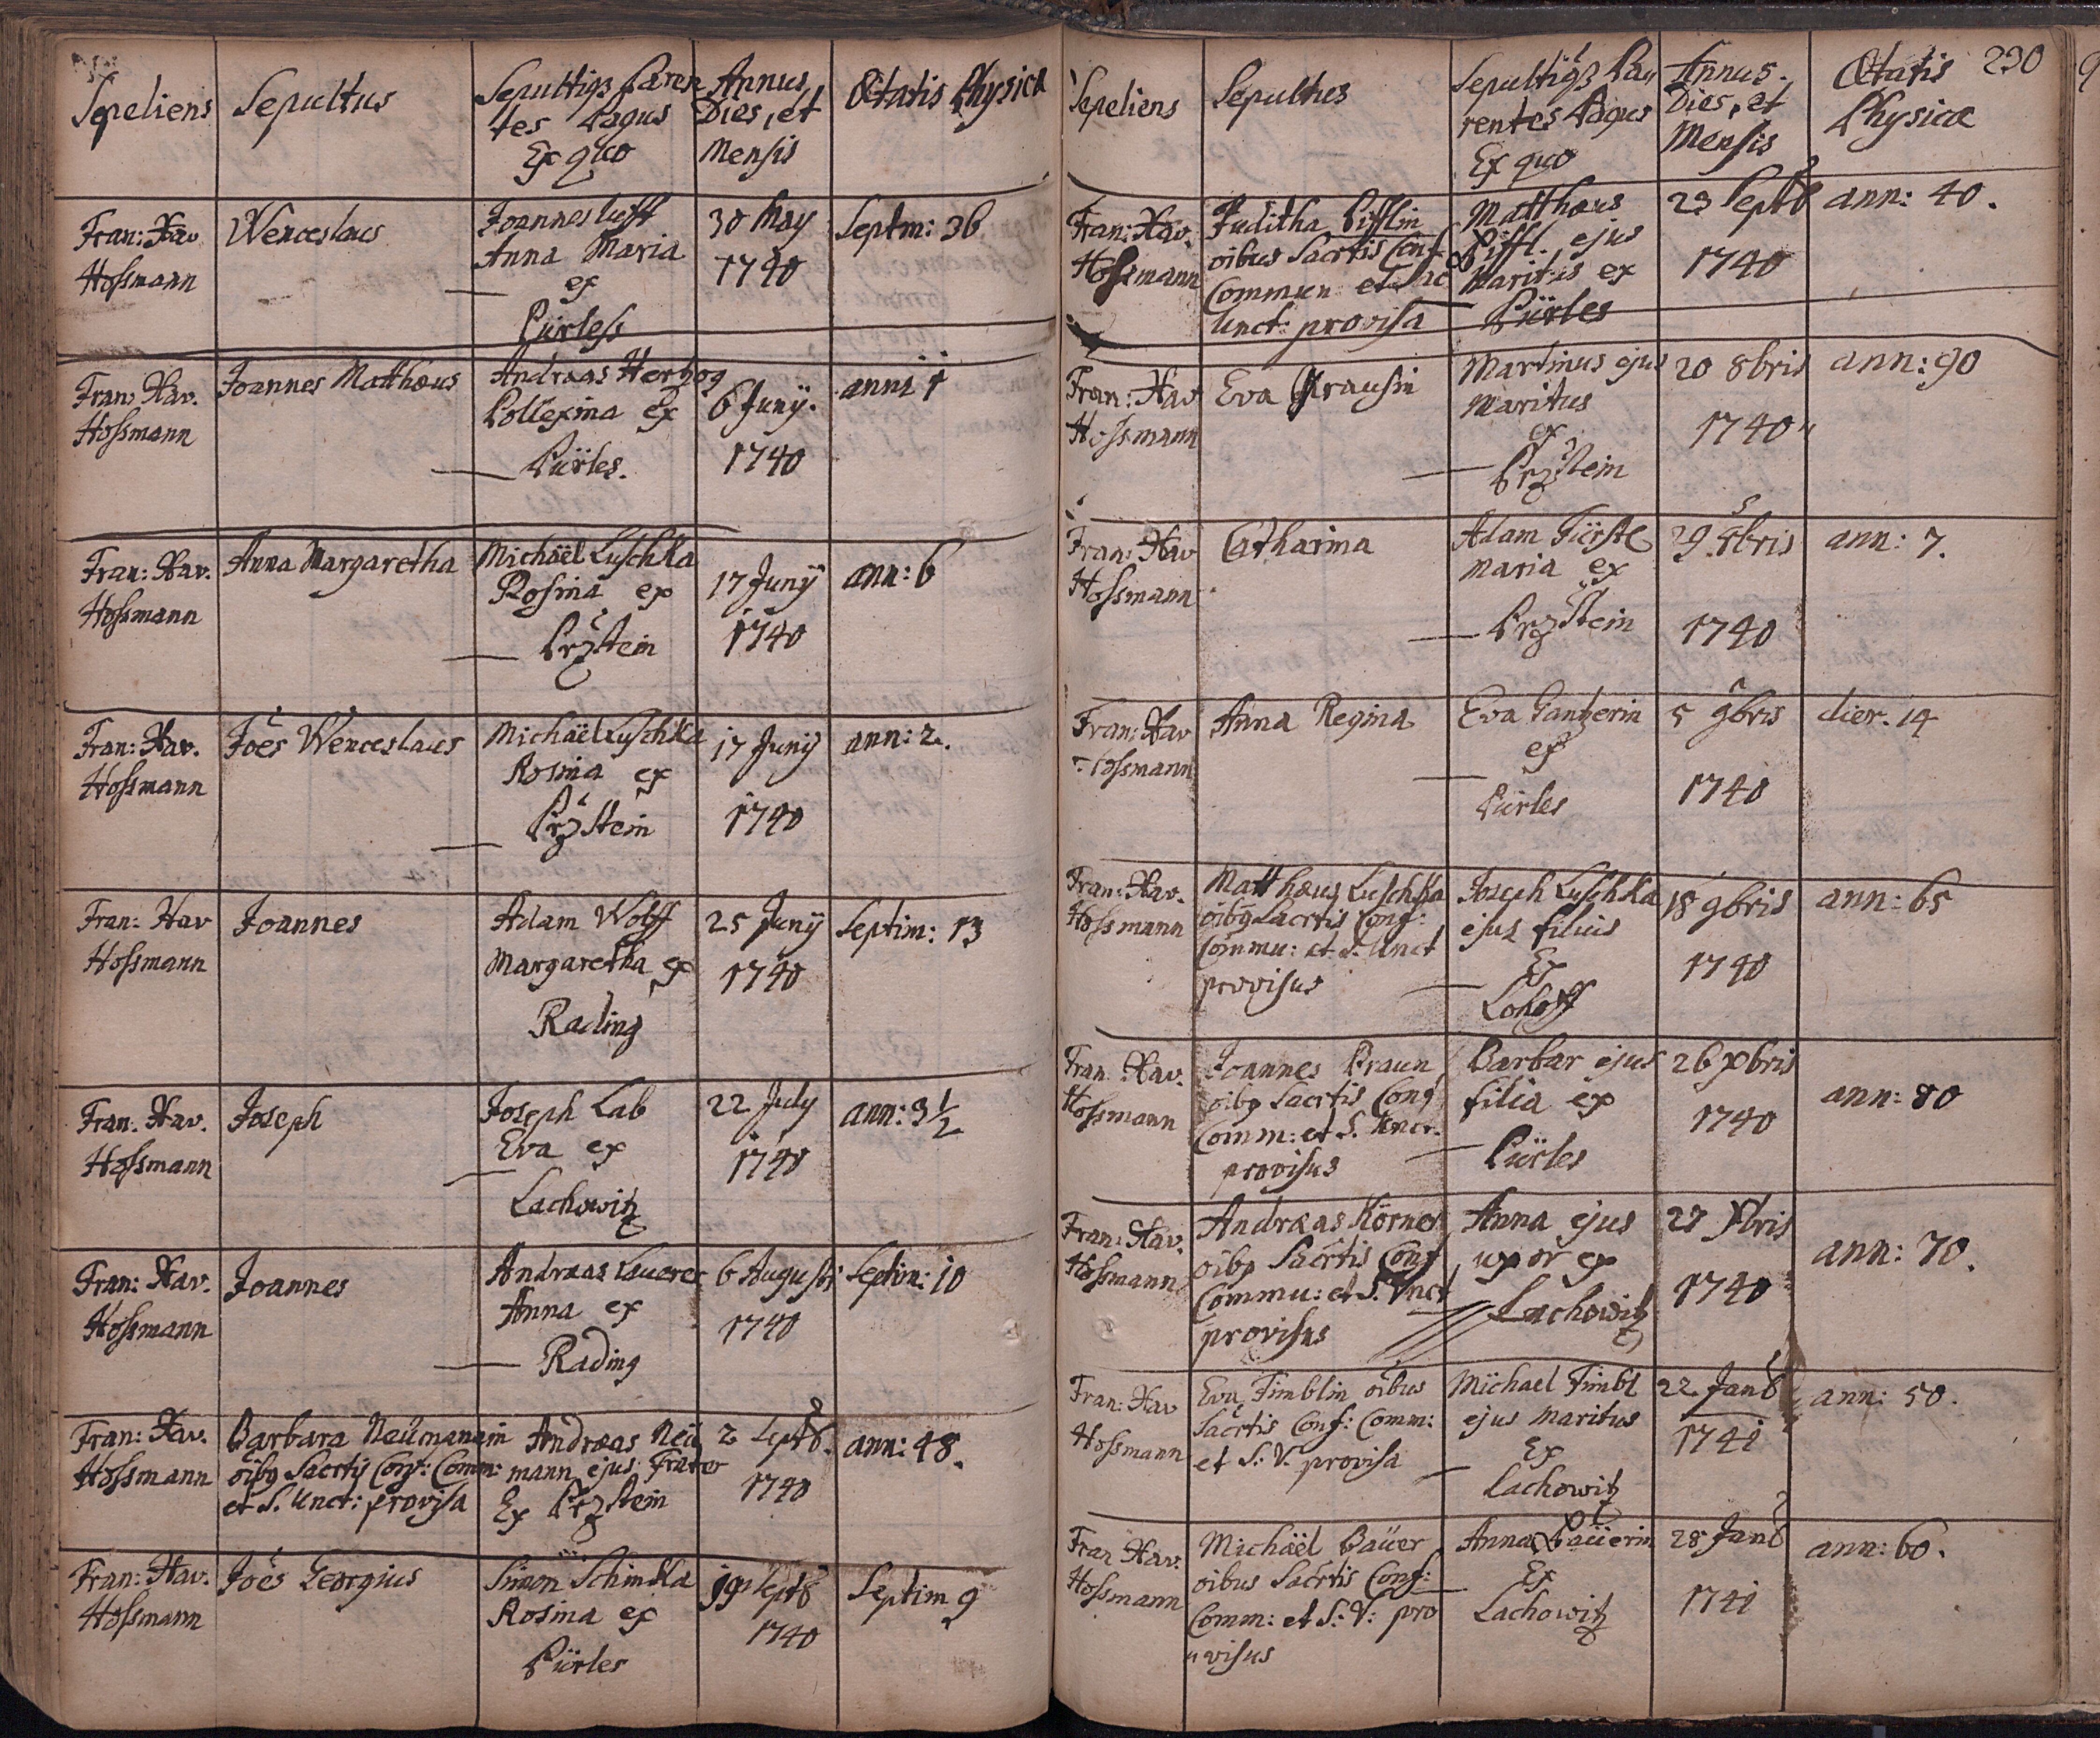 Sepeliens
Sepultus
Sepultiqz Paren
tes Pagus
Ex quo
Annus,
Dies, et
Mensis
Ætatis Physicæ
Fran: Xav
Hoſsmann
Wenceslaus
Joannes Luſt
Anna Maria
ex
Pürleſs
30 May
1740
Septm: 36
Fran: Xav.
Hoſsmann
Joannes Matthæus
Andræas Herzog
Pollexina Ex
Pürles.
6 Junÿ.
1740
anni 1
Fran: Xav.
Hoſsmann
Anna Margaretha
Michäel Luſchka
Roſina ex
Przſtein
17 Junÿ
1740
ann: 6
Fran: Xav.
Hoſsmann
Joes Wenceslaus
Michäel Luſchka
Rosina ex
Przſtein
17 Junÿ
1740
ann: 2.
Fran: Xav
Hoſsmann
Joannes
Adam Wolff
Margaretha ex
Rading
25 Junÿ
1740
Septim: 13
Fran: Xav.
Hoſsmann
Joseph
Joseph Lab
Eva ex
Lachowitz
22 July
1740
ann: 3 1/2
Fran: Xav.
Hoſsmann
Joannes
Andræas Lauerer
Anna ex
Rading
6 Augusti
1740
Septim: 10
Fran: Xav.
Hoſsmann
Barbara Neümanin
oibq Sacrtis Conf: Comm:
et S. Unct: proviſa
Andræas Neü
mann ejus Frater
Ex Przſtein
2 Septb.
1740
ann: 48.
Fran: Xav.
Hoſsmann
Joes Georgius
Simon Schimkla
Rosina ex
Pürles
19 Septb
1740
Septim 9
Sepeliens
Sepultus
Sepultiqz Pa
rentes Pagus
Ex quo
Annus.
Dies, et
Mensis
Ætatis
Physicæ
230
Fran: Xav.
Hoſsmann
Juditha Pifflin
oibus Sacrtis Conf
Commun et Sac
Unct: proviſa
Matthæus
Piffl. ejus
Maritus ex
Pürles
23 Septb
1740
ann: 40.
Fran: Xav
Hoſsmann
Eva Krauſin
Martinus ejus
Maritus
ex
Przſtein
20 8bris
1740
ann: 90
Fran: Xav
Hoſsmann
Catharina
Adam Fürſtl
Maria ex
Przſtein
29 8bris
1740
ann: 7.
Fran: Xav
Hoſsmann
Anna Regina
Eva Gantzerin
ex
Pürles
5 9bris
1740
dier. 14
Fran: Xav.
Hoſsmann
Matthæus Luſchka
oibq Sacrtis Conf:
Commu: et S. Unct
proviſus
Joseph Luſchka
ejus filius
Ex
Lohoff
18 9bris
1740
ann: 65
Fran Xav.
Hoſsmann
Joannes Praun
oibq Sacrtis Conf
Comm: et S. Unct.
proviſus
Barbar ejus
filia ex
Pürles
26 Xbris
1740
ann: 80
Fran: Xav.
Hoſsmann
Andræas Körner
oibq Sacrtis Conf
Commu: et S. Unct
proviſus
Anna ejus
uxor ex
Lachowitz
27 Xbris
1740
ann: 70.
Fran: Xav
Hoſsmann
Eva Fimblin oibus
Sacrtis Conf: Comm:
et S: V: proviſa
Michael Fimbl
ejus Maritus
Ex
Lachowitz
22 Janb
1741
ann: 50.
Fran Xav.
Hoſsmann
Michäel Baüer
oibus Sacrtis Conf:
Comm: et S: V: pro
visus
Anna Baüerin
Ex
Lachowitz
28 Janb
1741
ann: 60.